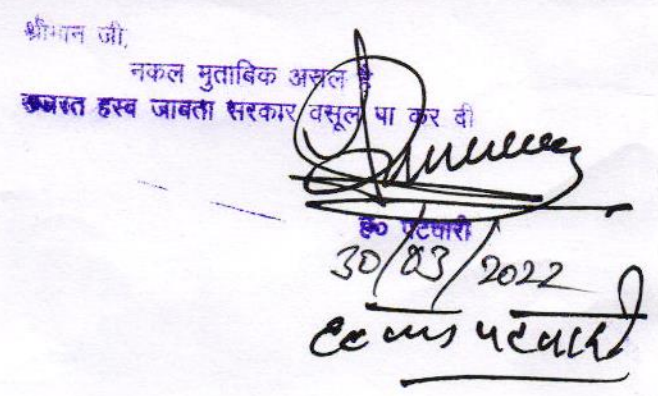 श्रीमान जी,
नकल मुताबिक असल है
उजरत हस्ब जाबता सरकार वसूल पा कर दी
ह० पटवारी
30/03/2022
पटवारी